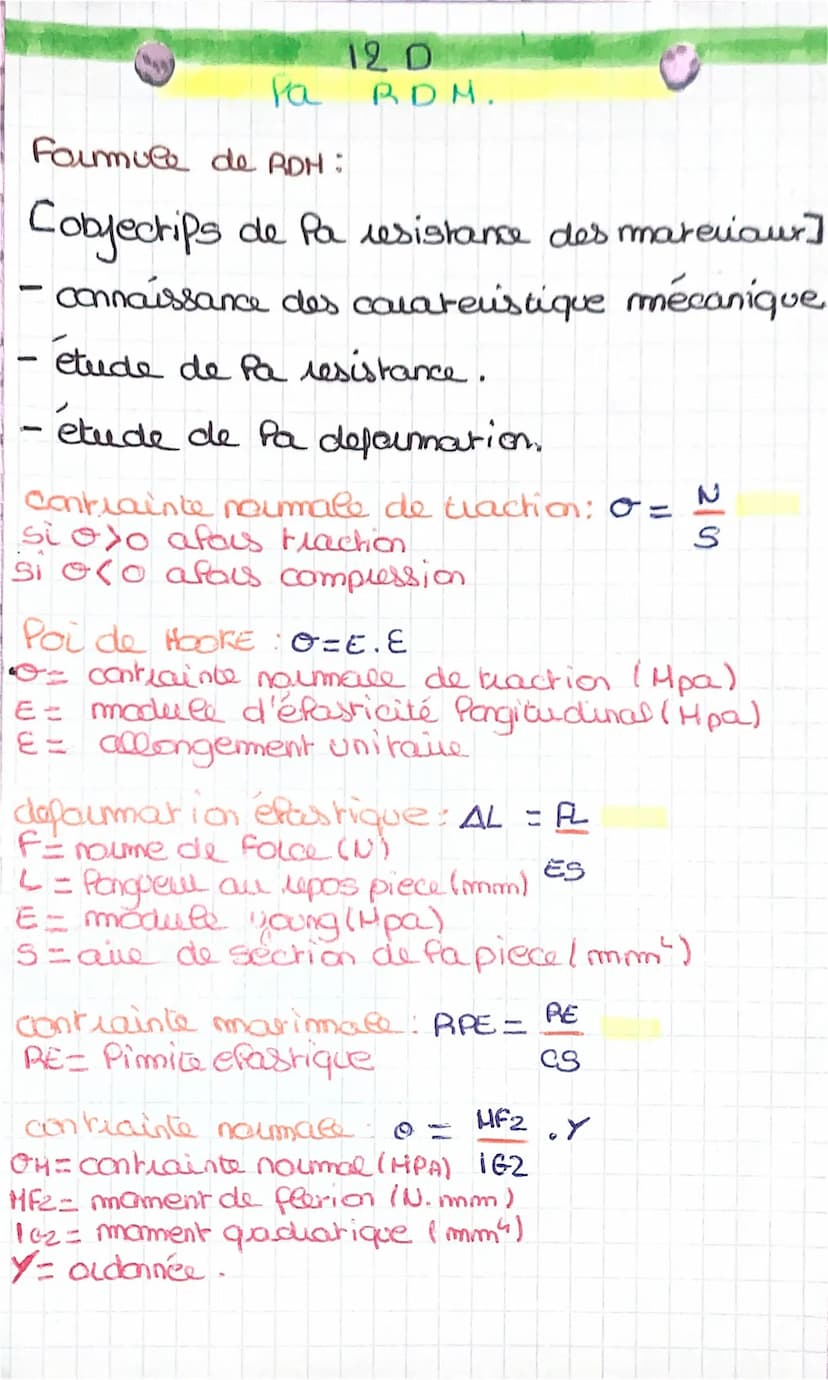 I2D
la RDM.
Formule de RDM :
[objectifs de la resistance des materiaux]
- connaissance des carateristique mécanique
- étude de la resistance.
- étude de la deformation.
contrainte normale de traction : σ = N/S
si σ>0 alors traction
si σ<0 alors compression
loi de HOOKE : σ=E.ε
σ= contrainte normale de traction (Mpa)
E= module d'élasticité longitudinal (Mpa)
ε= allongement unitaire
deformation élastique : ΔL = FL/ES
F= norme de force (N)
L = longueur au repos piece (mm)
E = module young (Mpa)
S = aire de section de la piece (mm²)
contrainte maximale : RPE = RE/CS
RE= limite elastique
contrainte normale : σ = MFZ/IGZ . Y
σM= contrainte normal (MPA)
MFZ= moment de flexion (N.mm)
IGZ= moment quadratique (mm⁴)
Y= ordonnée.